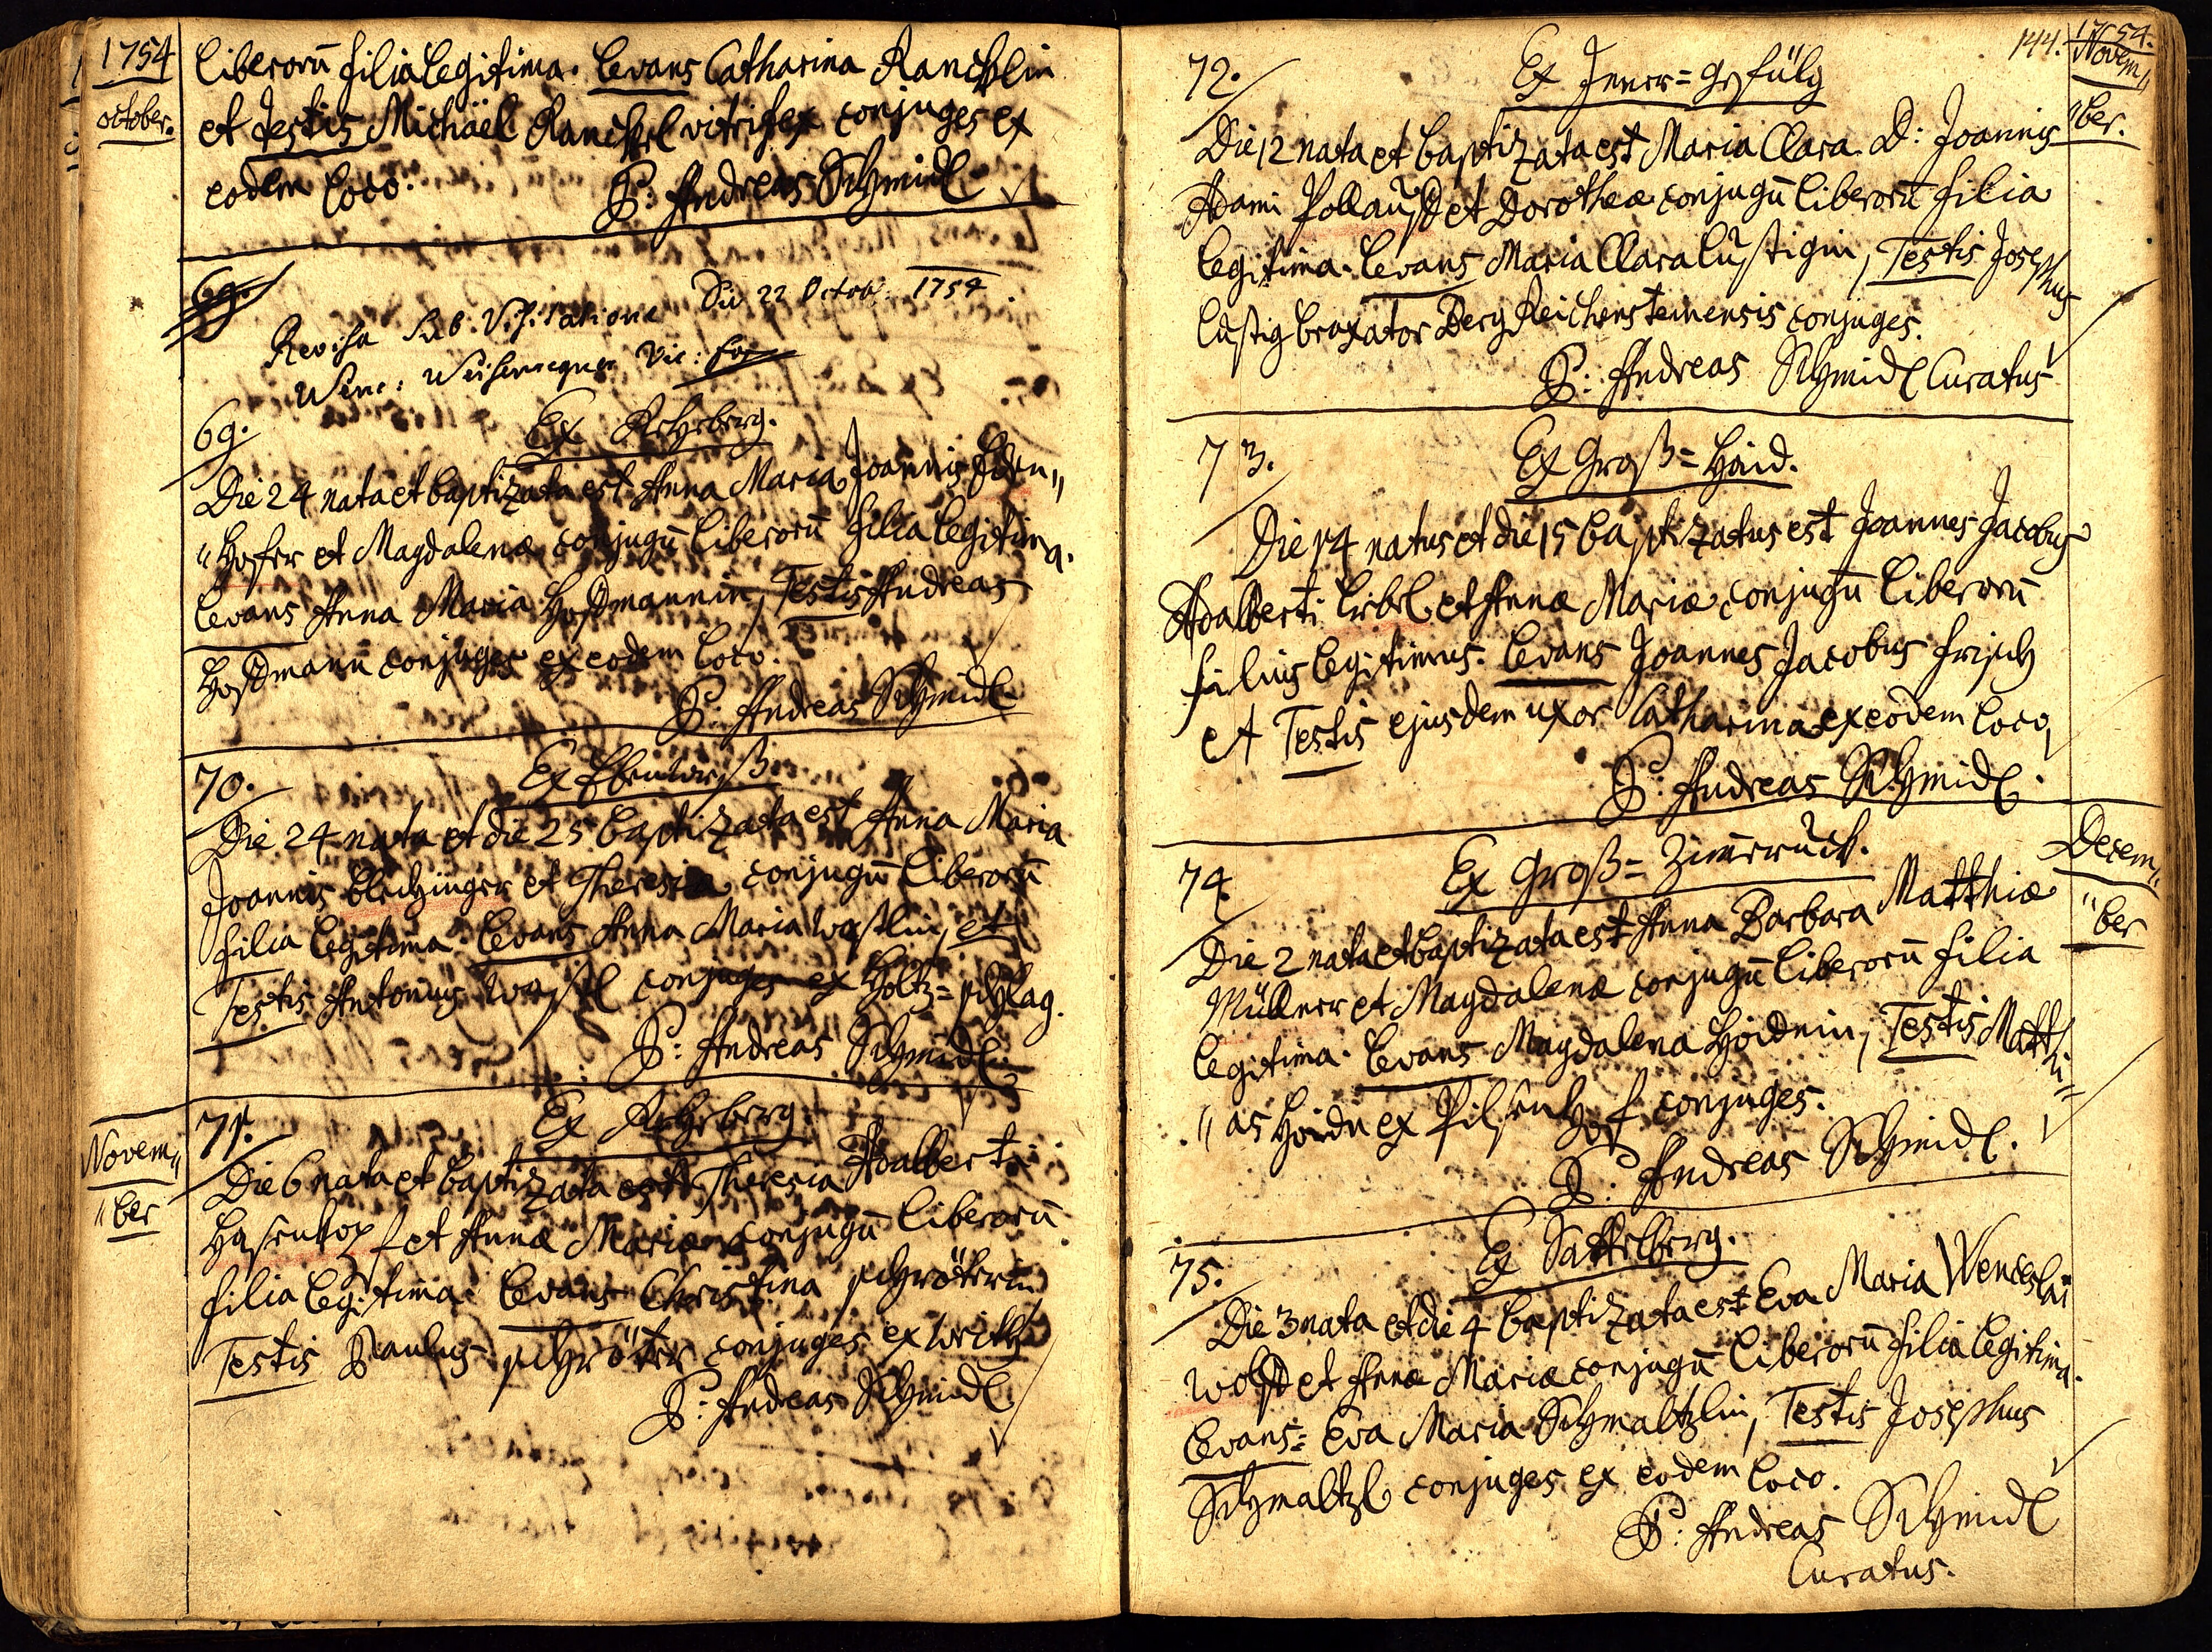 1754
october.
liberorū filia legitima. Levans Catharina Ranckhlin
et Testis Michäel Ranckhl vitrifex conjuges ex
eodem loco.
P: Andreas Schmidl
69.
Revisa sub Visitatione Die 22 Octob: 1754
Wenc:
69.
Ex Rehberg.
Die 24 nata et baptizata est Anna Maria Joannis Eden„
„hofer et Magdalenæ conjugū liberorū filia legitima.
Levans Anna Maria Hoffmannin, Testis Andreas
Hoffmann̄ conjuges ex eodem loco.
P: Andreas Schmidl
70.
Ex Ebenwiß
Die 24 nata et die 25 baptizata est Anna Maria
Joannis Blechinger et Theresiæ conjugū liberorū
filia legitima. Levans Anna Maria Wastlin, et
Testis Antonius Wastl conjuges ex Holtz=schlag.
P: Andreas Schmidl
Novem„
„ber
71.
Ex Rehberg.
Die 6 nata et baptizata est Theresia Adalberti
Hasenkopf et Annæ Mariæ conjugū liberorū
filia legitima. Levans Christina Schröterin
Testis Paulus Schröter conjuges ex
P: Andreas Schmidl
144.
1754.
Novem„
„ber.
72.
Ex Inner=gefülg
Die 12 nata et baptizata est Maria Clara D: Joannis
Adami Pollauf et Dorotheæ conjugū liberorū filia
legitima. Levans Maria Clara Lustigin, Testis Josephus
Lustig braxator Bergreichensteinensis conjuges.
P: Andreas Schmidl Curatus
73.
Ex Groß=Haid.
Die 14 natus et die 15 baptizatus est Joannes Jacobus
Adalberti Liebl et Annæ Mariæ conjugū liberorū
filius legitimus. Levans Joannes Jacobus Frisch
et Testis ejusdem uxor Catharina ex eodem loco,
P: Andreas Schmidl.
Decem„
„ber
74.
Ex Groß=Zim̄erruck.
Die 2 nata et baptizata est Anna Barbara Matthiæ
Müllner et Magdalenæ conjugū liberorū filia
legitima. Levans Magdalena Hoidnin, Testis Matthi=
„as Hoidn ex Pilsenhof conjuges.
P: Andreas Schmidl.
75.
Ex Sattelberg.
Die 3 nata et die 4 baptizata est Eva Maria Wenceslai
Wolf et Annæ Mariæ conjugū liberorū filia legitima.
Levans= Eva Maria Schmaltzlin, Testis Josephus
Schmaltzl conjuges ex eodem loco.
P: Andreas Schmidl
Curatus.